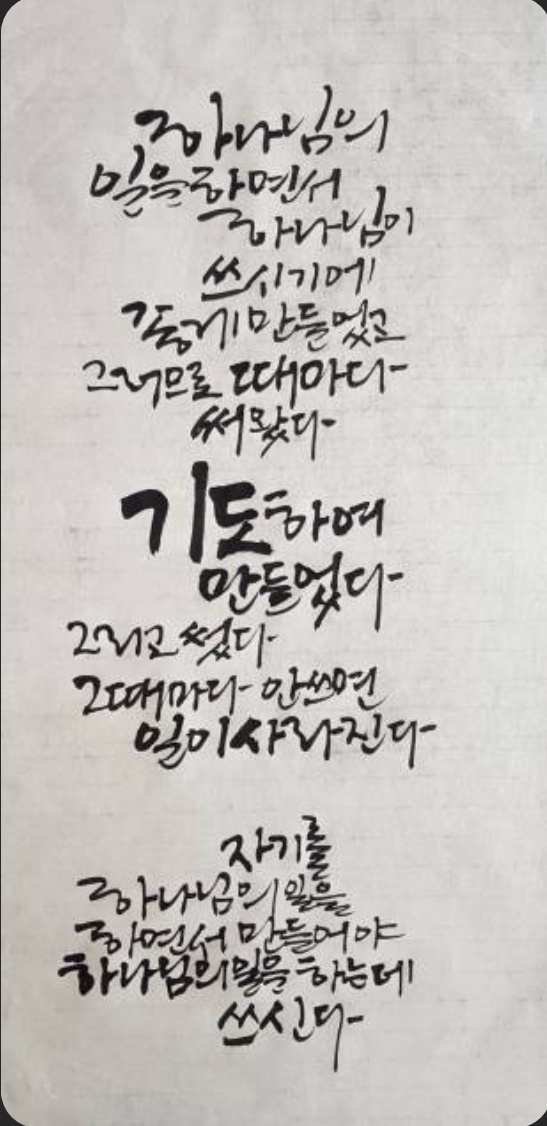 하나님의
일을 하면서
하나님이
쓰시기에
좋게 만들었고
그러므로 때마다
써왔다
기도하여
만들었다
그리고 썼다
그때마다 안쓰면
일이 사라진다
자기를
하나님의 일을
하면서 만들어야
하나님의 일을 하는데
쓰신다